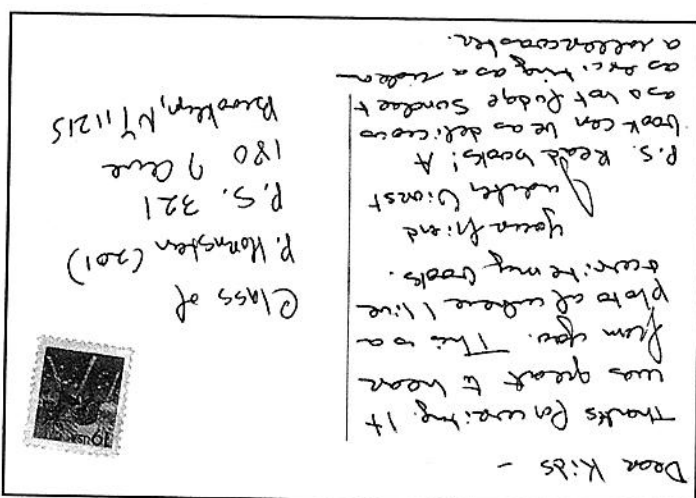 Dear Kids -
Thanks for writing. It
was great to hear
from you. This is a
photo of where I live
& write my books.
Your friend
Judith Viorst
P.S. Read books! A
book can be as delicious
as a hot fudge sundae &
as exciting as a ride on
a rollercoaster.
Class of
P. (201)
P.S. 321
180 7 Ave
Brooklyn, NY 11215